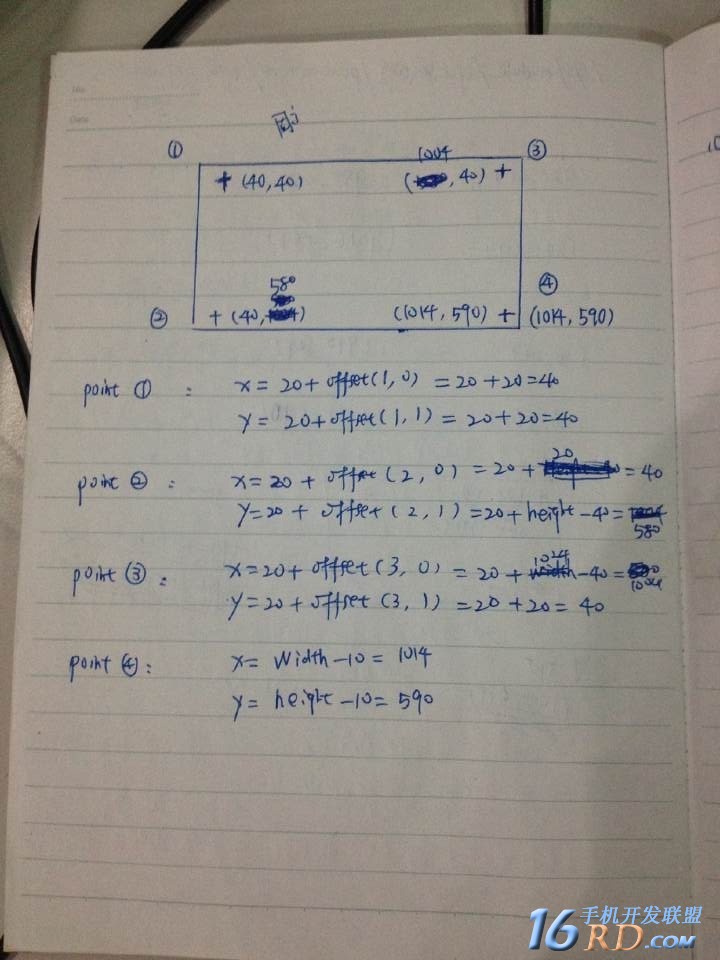 No:
Date
① ③
1004
+ (40,40) ( , 40) +
④
580
② + (40, ) (1014, 590) + (1014, 590)
point ① : x= 20+ offset(1,0) = 20+20=40
y= 20+offset(1,1) = 20+20=40
20
point ② : x=20 + offset (2,0) = 20+ = 40
y=20 + offset (2,1) =20+height-40=
580
1024
point ③ : x=20+ offset (3,0) = 20+width-40=
1004
y=20+offset (3,1) =20+20= 40
point ④ : x= width-10= 1014
y= height-10= 590
16RD.COM 手机开发联盟